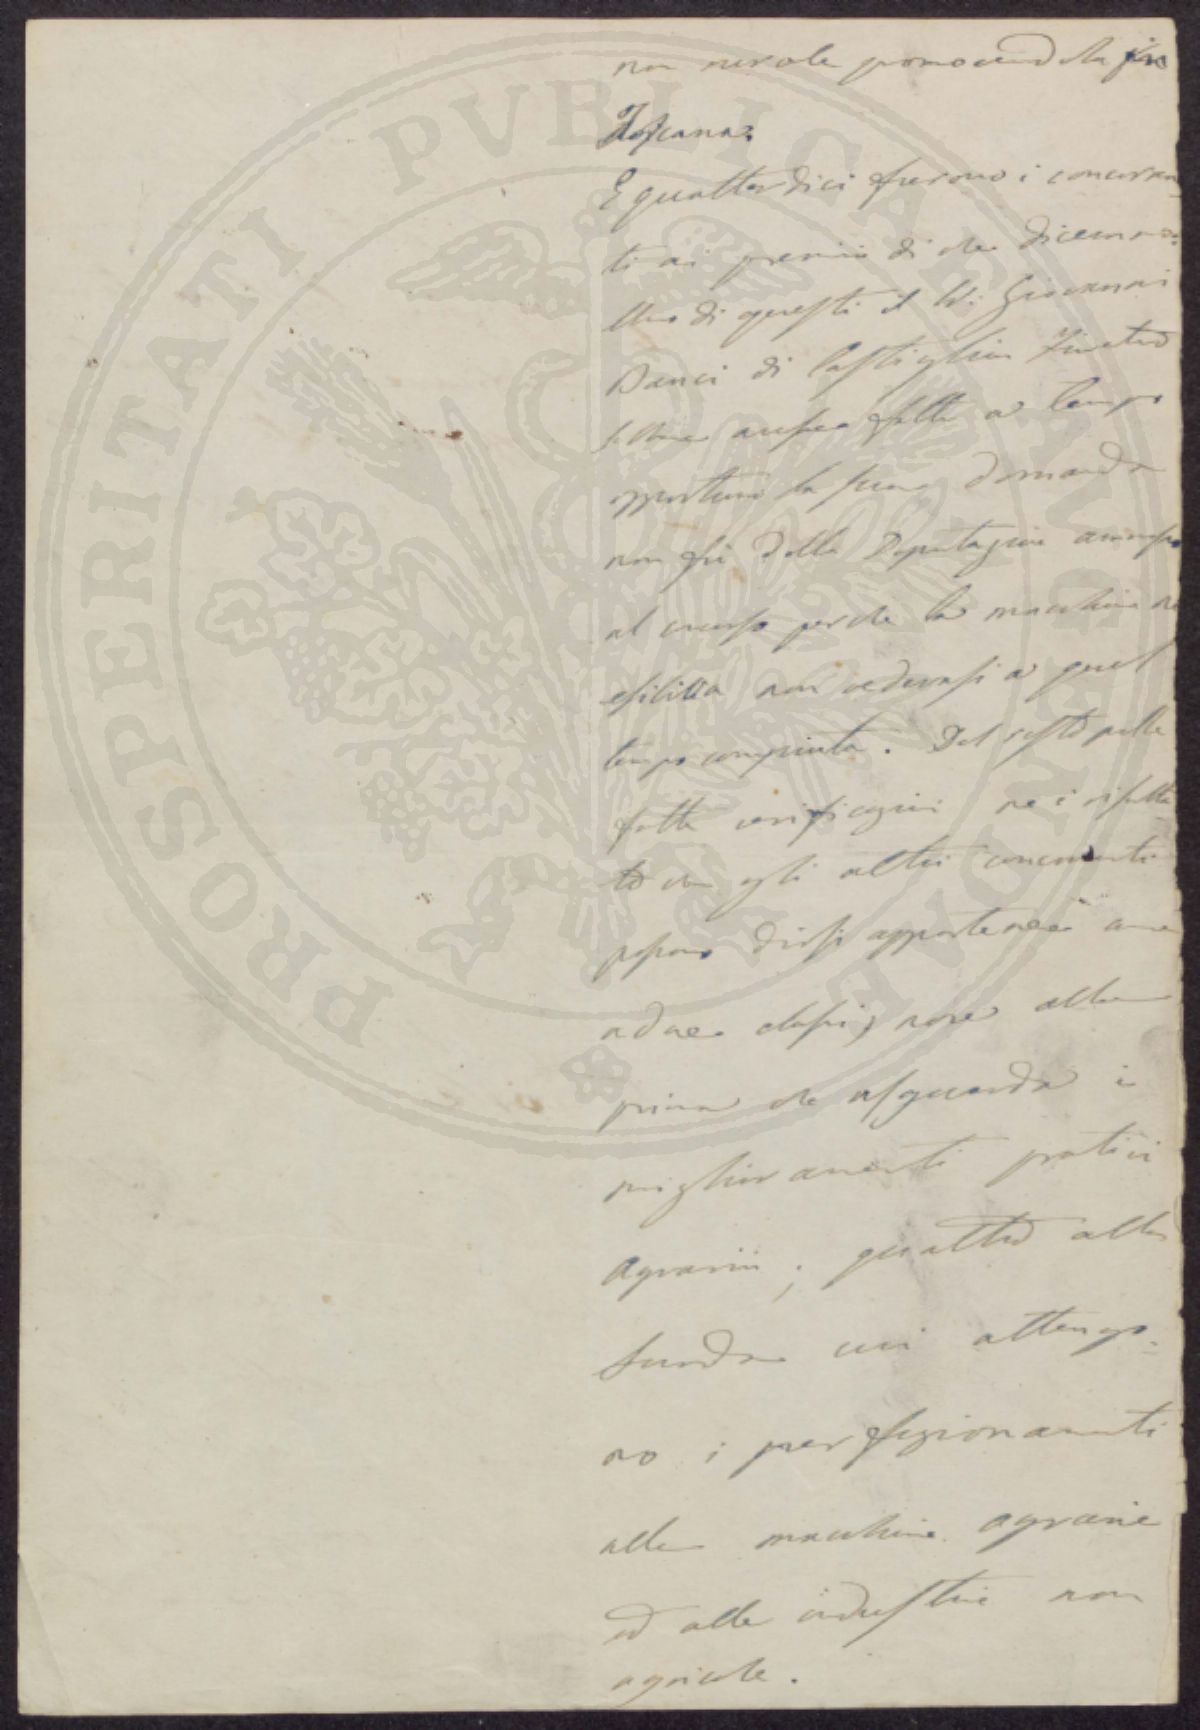 non neviale promovend della fra
Toscana.
E quattordici furono i concorren
ti ai premii di che dicemmo:
Uno di questi il Sig. Giovanni
Banci di Castiglion Fiorentino
sebbene avesse fatta a tempo
opportuno la sua domanda
non fu dalla Deputazione ammesso
al concorso perche la macchina da
esibirsi non vedevasi a quel
tempo compiuta. Del resto pelle
fatte verificazioni ne è risulta
to che gli altri concorrenti
possono dirsi appartenere come
a due classi, nove alla
prima che risguarda i
miglioramenti pratici
Agrarii; quattro alla
seconda cui attengo-
no i perfezionamenti
alle macchine agrarie
ed alle industrie non
agricole.
PROSPERITATI PVBLICAE AVGENDAE